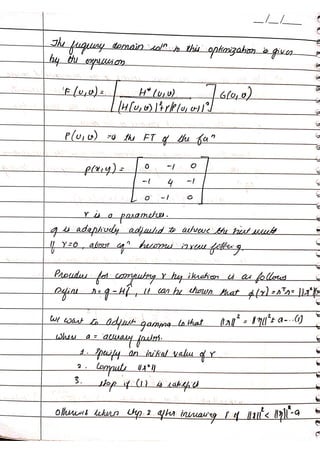 __/__/__
The freq​uency domain solⁿ to this optimization is given
by the expression
F̂(u,v) = [ H*(u,v) / |H(u,v)|² + γ|P(u,v)|² ] G(u,v)
P(u,v) → the FT of the fnⁿ
p(x,y) = [ 0 -1 0
-1 4 -1
0 -1 0 ]
γ is a parameter.
g is adaptively adjusted to achieve the
If γ=0, above eqⁿ becomes inverse
Procedure for computing γ by iteration is as follows
Define r = g - Hf̂, it can be shown that φ(γ) = rᵀr = ||r||²
we want to adjust gamma so that ||r||² = ||η||² ± a -..(1)
where a = accuracy factor.
1. Specify an initial value of γ
2. Compute ||r||²
3. Stop if (1) is satisfied
Otherwise return step 2 after increasing γ if ||r||² < ||η||² - a